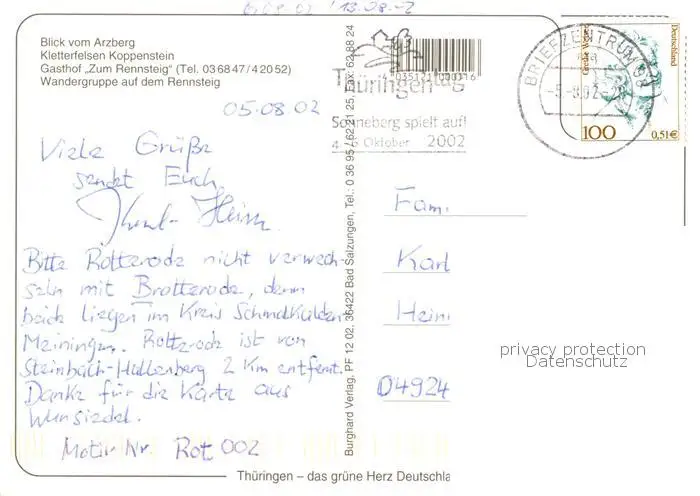 06.08.02 / 13.08.02
Blick vom Arzberg
Kletterfelsen Koppenstein
Gasthof „Zum Rennsteig" (Tel. 03 68 47 / 4 20 52)
Wandergruppe auf dem Rennsteig
05.08.02
Viele Grüße
sendet Euch
Bitte Rotterode nicht verwech-
seln mit Brotterode, denn
beide liegen im Kreis Schmalkalden
Meiningen. Rotterode ist von
Steinbach-Hallenberg 2 Km entfernt.
Danke für die Karte aus
Wunsiedel.
Motiv Nr. Rot 002
Burghard Verlag, PF 12 02, 36422 Bad Salzungen, Tel.: 0 36 95 / 62 21 25, Fax: 62 88 24
4 035121 000316
Thüringentag
Sonneberg spielt auf!
4.-6. Oktober 2002
BRIEFZENTRUM 98
-5.-8.02-21
Deutschland
100
0,51€
Fam.
Karl
Hein
04924
privacy protection
Datenschutz
Thüringen – das grüne Herz Deutschla